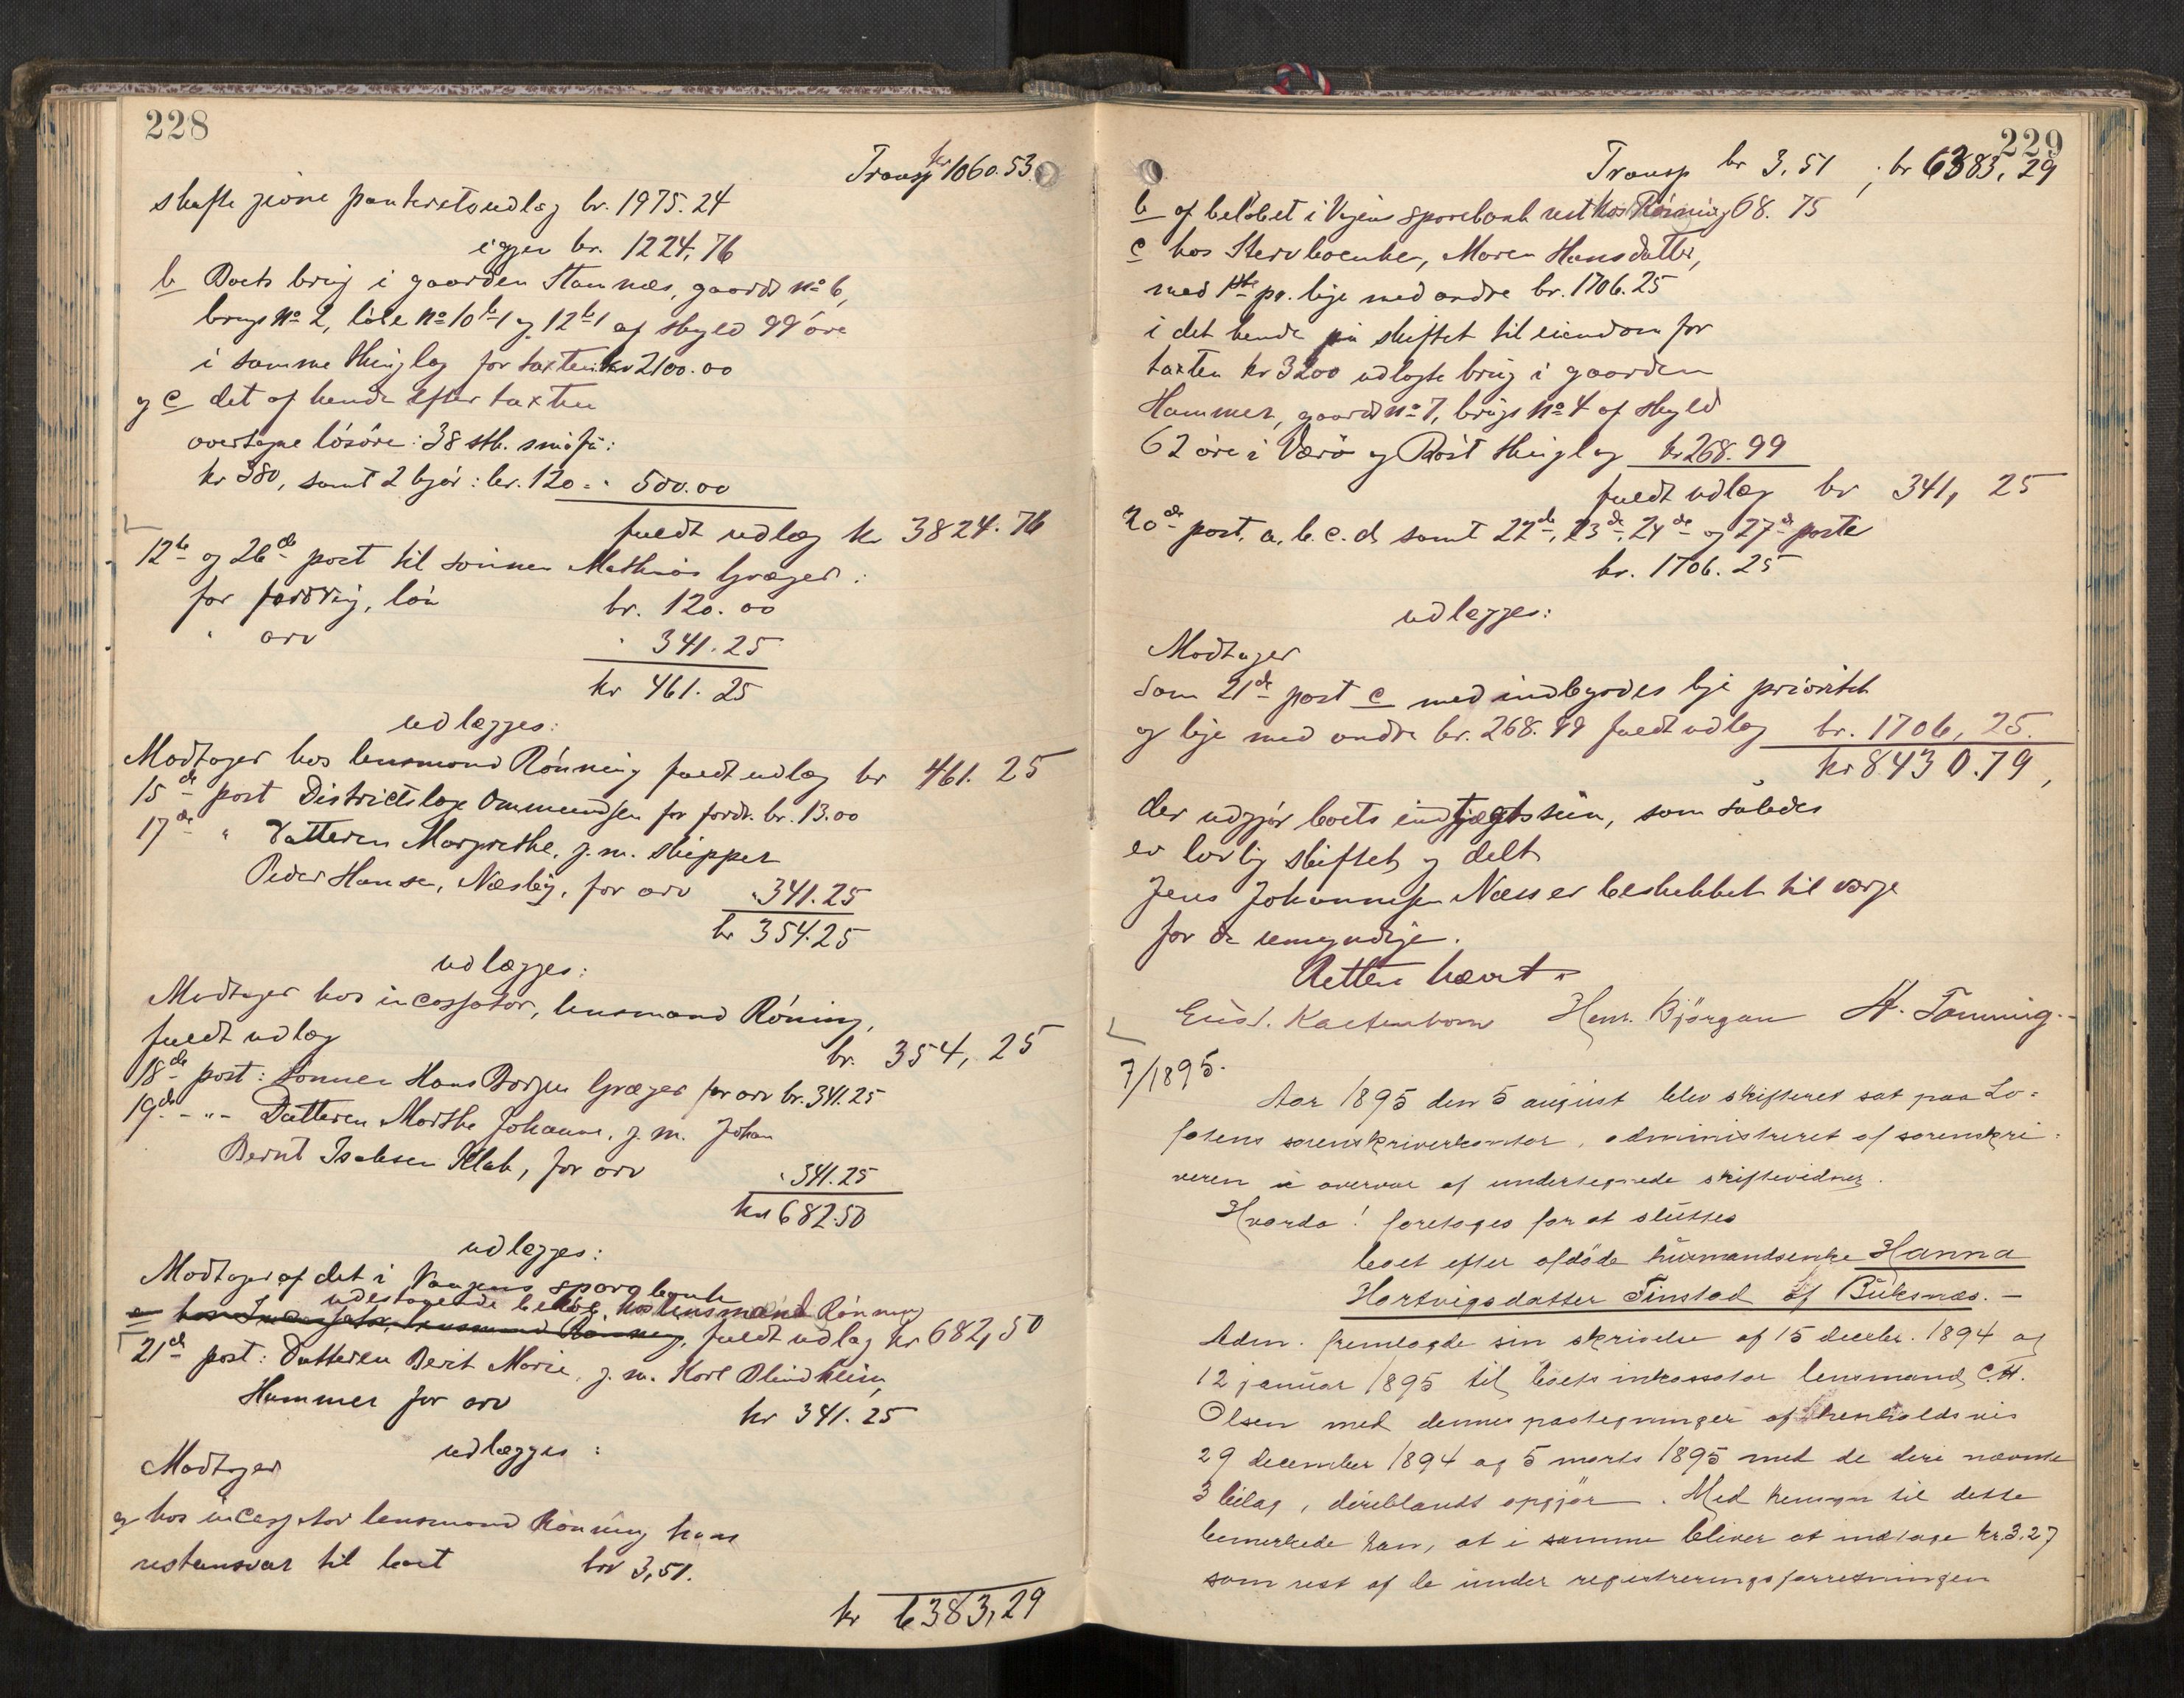 228
Transp kr 1060.53.
skafte gione panteretsudlæg kr. 1975.24
igjen kr. 1224,76
b Boets brug i gaarden Stamnæs, gaards No 6,
brugs No 2, løbe No 10 b 1 og 12 b 1 af skyld 99 øre
i samme thinglag for taxten kr 2100.00
og c det af hende efter taxten
overtagne løsøre: 38 stk. småfæ:
kr 380, samt 2 kjør: kr. 120 = " 500.00
fuldt udlæg kr 3824.76
12te og 26de post til sønnen Mathias Græger:
for fordring, løn kr. 120.00
" arv " 341.25
kr 461.25
udlægges:
Modtager hos lensmand Rønning fuldt udlæg kr 461.25
15de post Districtslæge Ommundsen for fordr. kr. 13.00
17de " Datteren Margrethe, g. m. skipper
Peder Hansen, Næsby, for arv " 341.25
kr 354.25
udlægges:
Modtager hos incassator, lensmand Röning,
fuldt udlæg kr. 354,25
18de post: sønnen Hans Borgen Græger for arv kr. 341.25
19de - " - Datteren Marthe Johanne, g. m. Johan
Bernt Isaksen Klak, for arv " 341.25
kr 682.50
udlægges:
Modtager af det i Vaagens sparebank
udestaaende beløb hos lensmand Rönning
a hos Incassator, lensmand Rönning, fuldt udlæg kr 682,50
21de post: Datteren Berit Marie, g. m. Karl Blindheim,
Hammer for arv kr 341.25
udlægges:
Modtager
og hos incassator lensmand Rönning hans
restansvar til boet kr 3,51.
kr 6383,29
229
Transp kr 3,51; kr 6383,29
b af beløbet i Vågens sparebank rest hos Rönning 68.75
c hos Stervboenken, Maren Hansdatter,
med 1ste pr. lige med andre kr. 1706.25
i det hende på skiftet til eiendom for
taxten kr 3200 udlagte brug i gaarden
Hammer, gaards No 7, brugs No 4 af skyld
62 øre i Værø og Røst thinglag kr 268.99
fuldt udlæg kr 341,25
20de post. a. b. c. d. samt 22de, 23de, 24de og 27de poster
kr. 1706.25
udlægges:
Modtager
som 21de post c med indbyrdes lige prioritet
og lige med andre kr. 268.99 fuldt udlæg kr. 1706,25.
kr 8430.79,
der udgjør boets indtægtssum, som således
er lovlig skiftet og delt
Jens Johannesen Næss er beskikket til værge
for de umyndige.
Retten hævet
Gust. Kaltenborn Henr. Björgan H. Tønning.
7/1895.
Aar 1895 den 5 august blev skifteret sat paa Lo-
fotens sorenskriverkontor, administreret af sorenskri-
veren i overvær af undertegnede skiftevidner.
Hvorda! foretages for at sluttes
boet efter afdöde husmandsenke Hanna
Hartvigsdatter Finstad af Buksnæs. -
Adm. fremlagde sin skrivelse af 15 decbr. 1894 og
12 januar 1895 til boets inkassator lensmand C. H.
Olsen med dennes paategninger af henholdsvis
29 december 1894 og 5 marts 1895 med de deri nævnte
3 bilag, deriblandt opgjör. Med hensyn til dette
bemerkede han, at i samme bliver at indtage kr. 3.27
som rest af de under registreringsforretningen